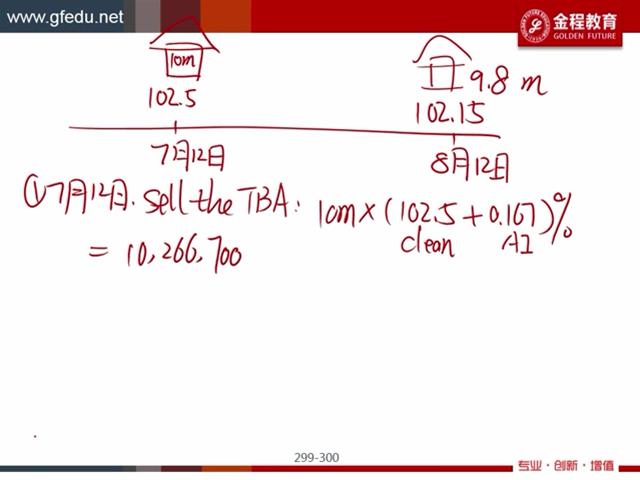 www.gfedu.net
金程教育
GOLDEN FUTURE
10m
102.5
9.8 m
102.15
7月12日
8月12日
①7月12日. Sell the TBA: 10m×(102.5+0.167)%
clean AI
= 10,266,700
299-300
专业·创新·增值